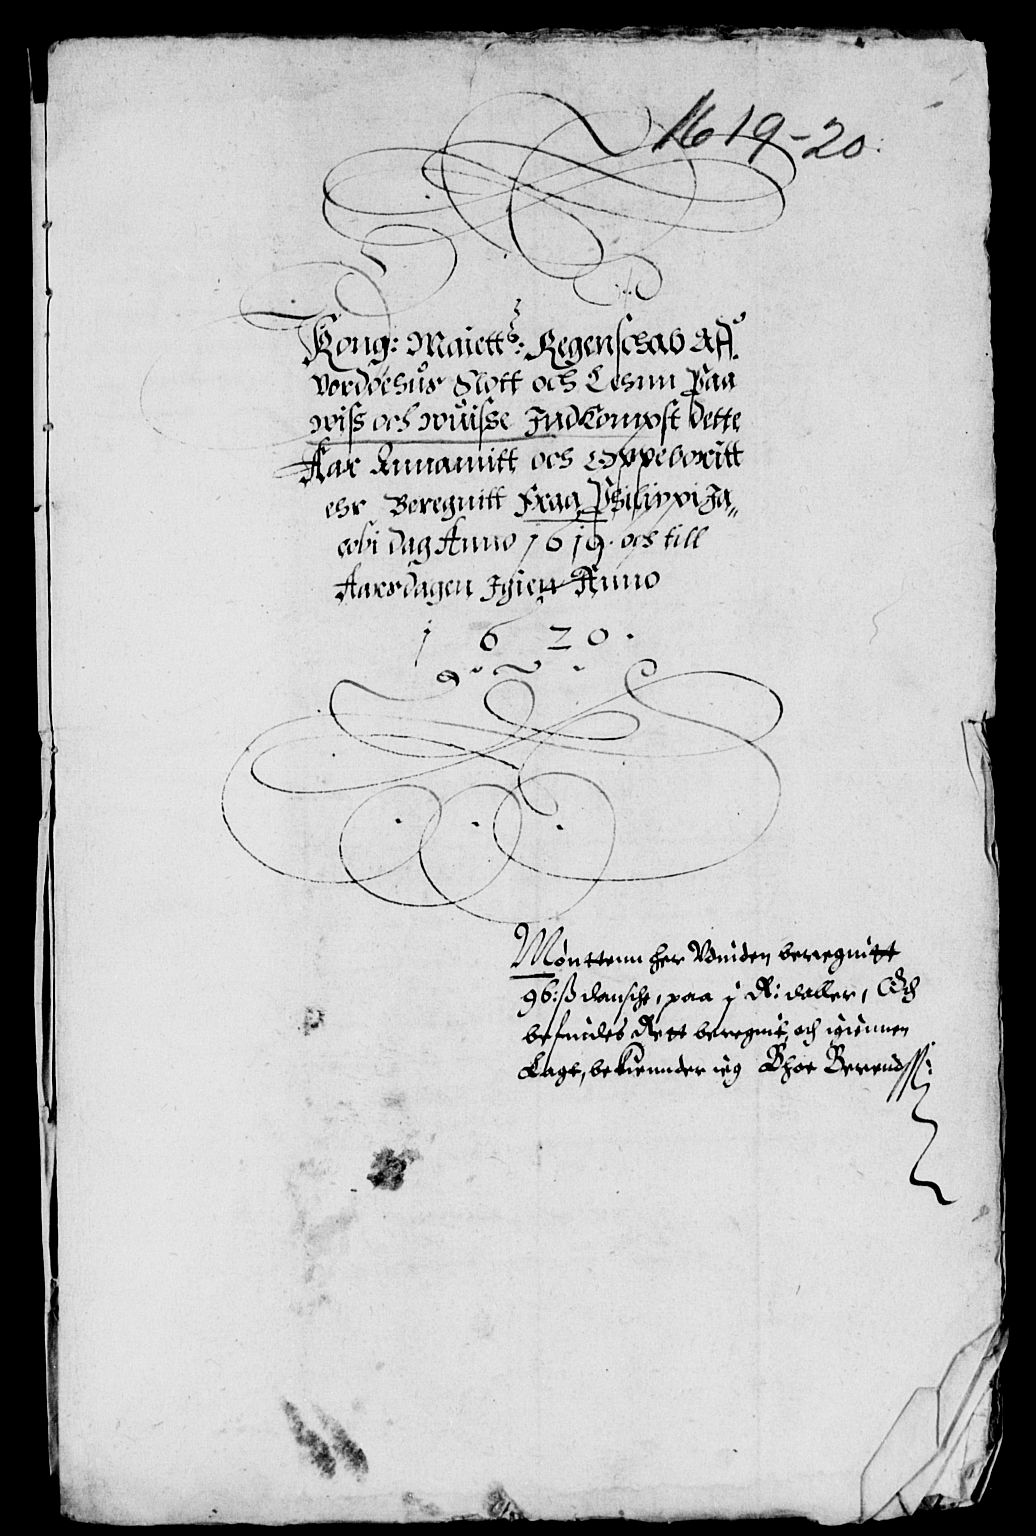 1619-20.
Kong: Maiettz: Regenschab Aff
Vordøehus Slott och Lehnn Paa
wiss och wuisse Indkompst dette
Aar Annamitt och Oppeboritt
ehr Beregnitt Fraa Philippi Ja„
cobi dag Anno 1619. och till
Aarsdagen Igien Anno
1620.
Mønttenn her Vdniden beregnitt
96: ß dansche, paa j R: daller, Och
befindes Rett beregnit, och igiennen
Lagt, bekiennder ieg